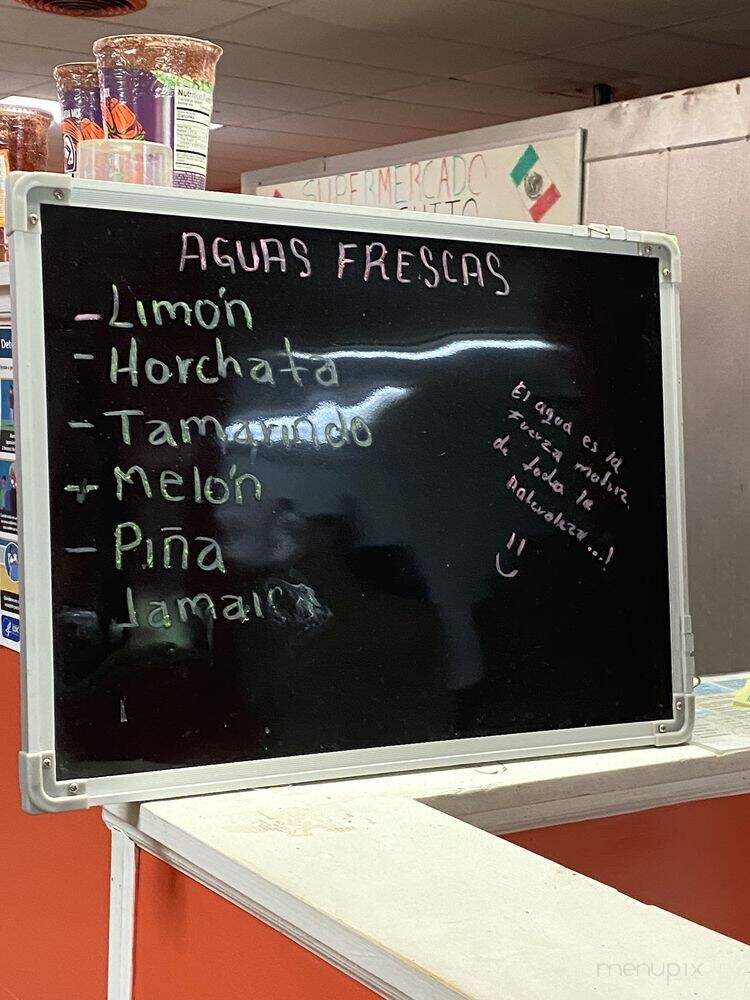 SUPERMERCADO
AGUAS FRESCAS
- Limón
- Horchata
- Tamarindo
+ Melón
- Piña
Jamaica
El agua es la
Fuerza motriz
de toda la
Naturaleza...!
menupix